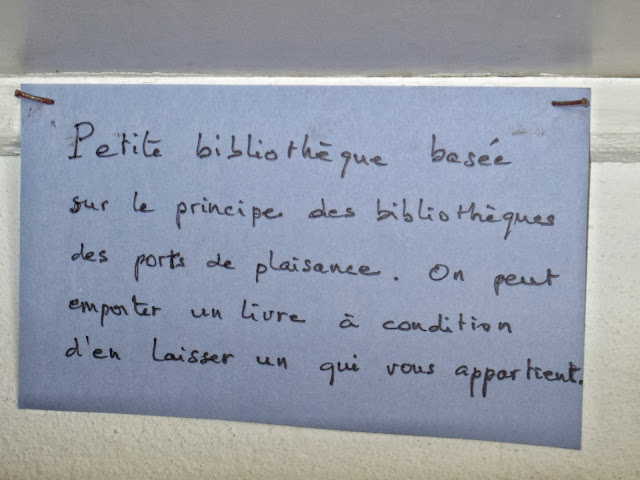 Petite bibliothèque basée
sur le principe des bibliothèques
des ports de plaisance. On peut
emporter un livre à condition
d'en laisser un qui vous appartient.